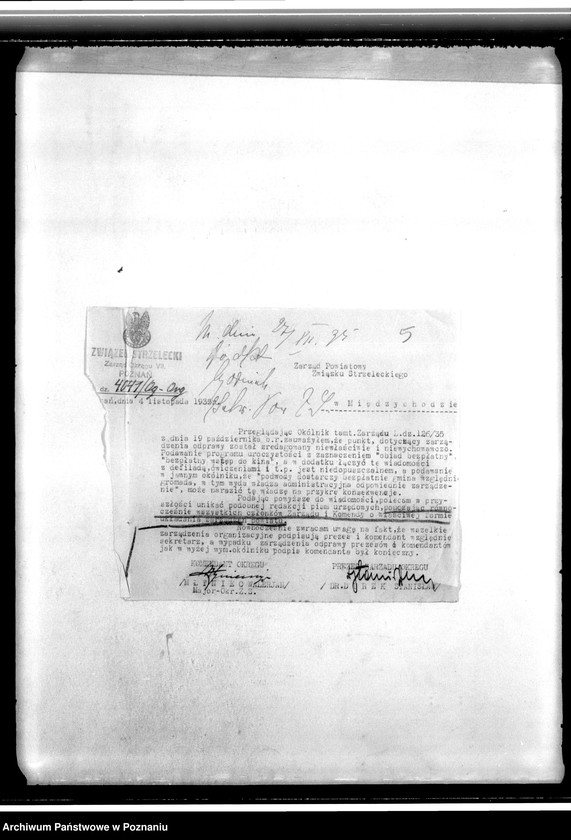 W dniu 27/XII. 35 5
ZWIĄZEK STRZELECKI
Zarząd Okręgu VII
POZNAŃ
dz. 4047/Og-Org
Zarząd Powiatowy
Związku Strzeleckiego
dnia 4 listopada 1935
w Międzychodzie
Przeglądając Okólnik tamt.Zarządu L.dz.126/35
z dnia 19 października b.r.zauważyłem,że punkt, dotyczący zarzą-
dzenia odprawy został zredagowany niewłaściwie i niewychowawczo.
Podawanie programu uroczystości z zaznaczeniem "obiad bezpłatny"
"bezpłatny wstęp do kina", a w dodatku łączyć te wiadomości
z defiladą,ćwiczeniami i t.p. jest niedopuszczalnem, a podawanie
w jawnym okólniku,że "podwody dostarczy bezpłatnie gmina względnie
gromada, w tym wyda władza administracyjna odpowiednie zarządze-
nie", może narazić tę władzę na przykre konsekwencje.
Podając powyższe do wiadomości,polecam w przy-
szłości unikać podobnej redakcji pism urzędowych,pouczając równo-
cześnie wszystkich członków Zarządu i Komendy o właściwej formie
układania
zwracam uwagę na fakt,że wszelkie
zarządzenia organizacyjne podpisują prezes i komendant względnie
sekretarz, a wypadku zarządzenia odprawy prezesów i komendantów
jak w wyżej wym.okólniku podpis komendanta był konieczny.
KOMENDANT OKRĘGU
PREZES ZARZĄDU OKRĘGU
Major-Okr.Z.S.
/DR.D U R E K STANISŁAW/
Archiwum Państwowe w Poznaniu